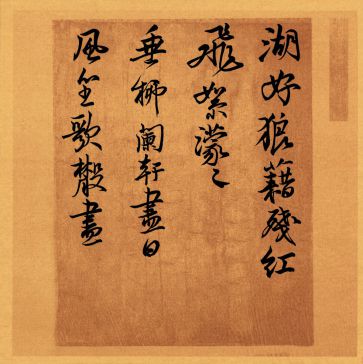 湖好狼藉殘紅
飛絮濛〻
垂柳闌軒盡日
風笙歌散盡